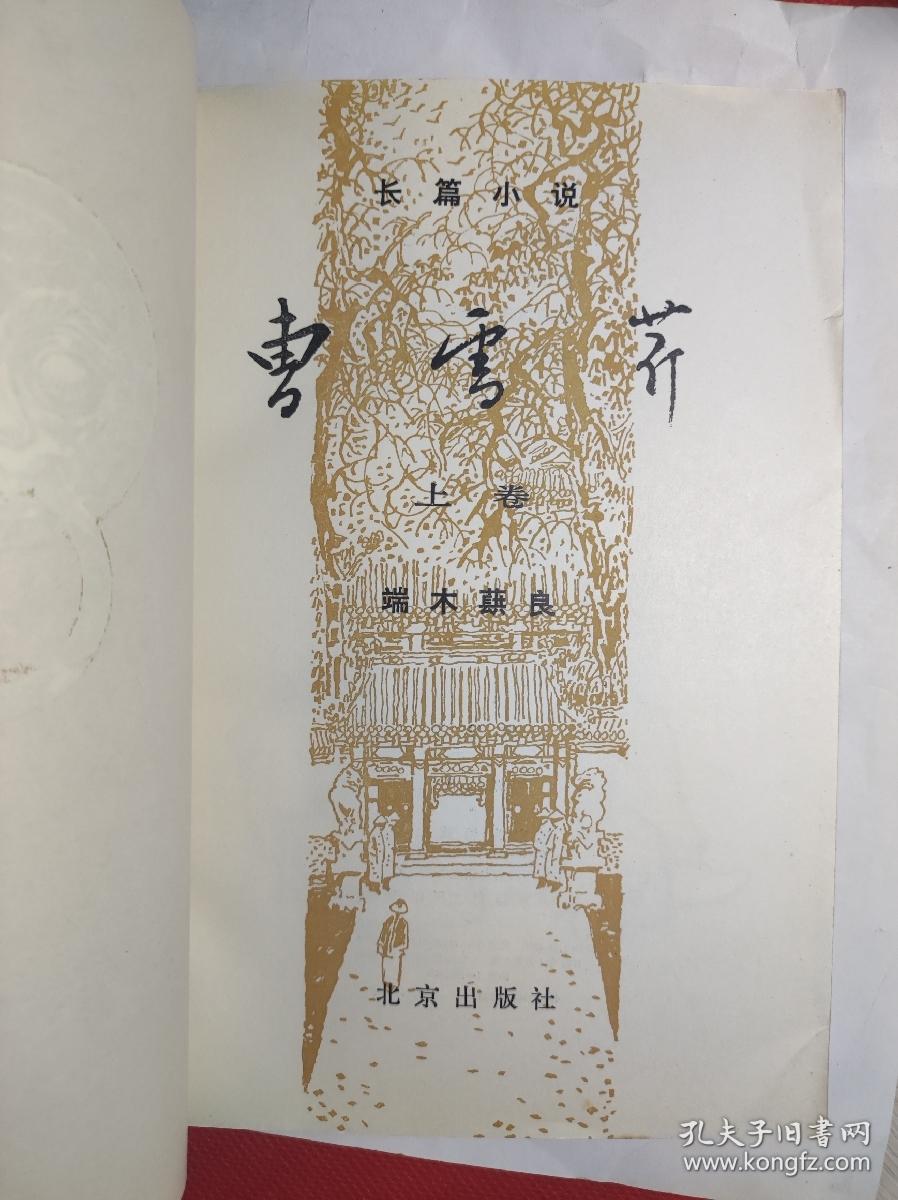 长篇小说
曹雪芹
上卷
端木蕻良
北京出版社
孔夫子旧书网
www.kongfz.com